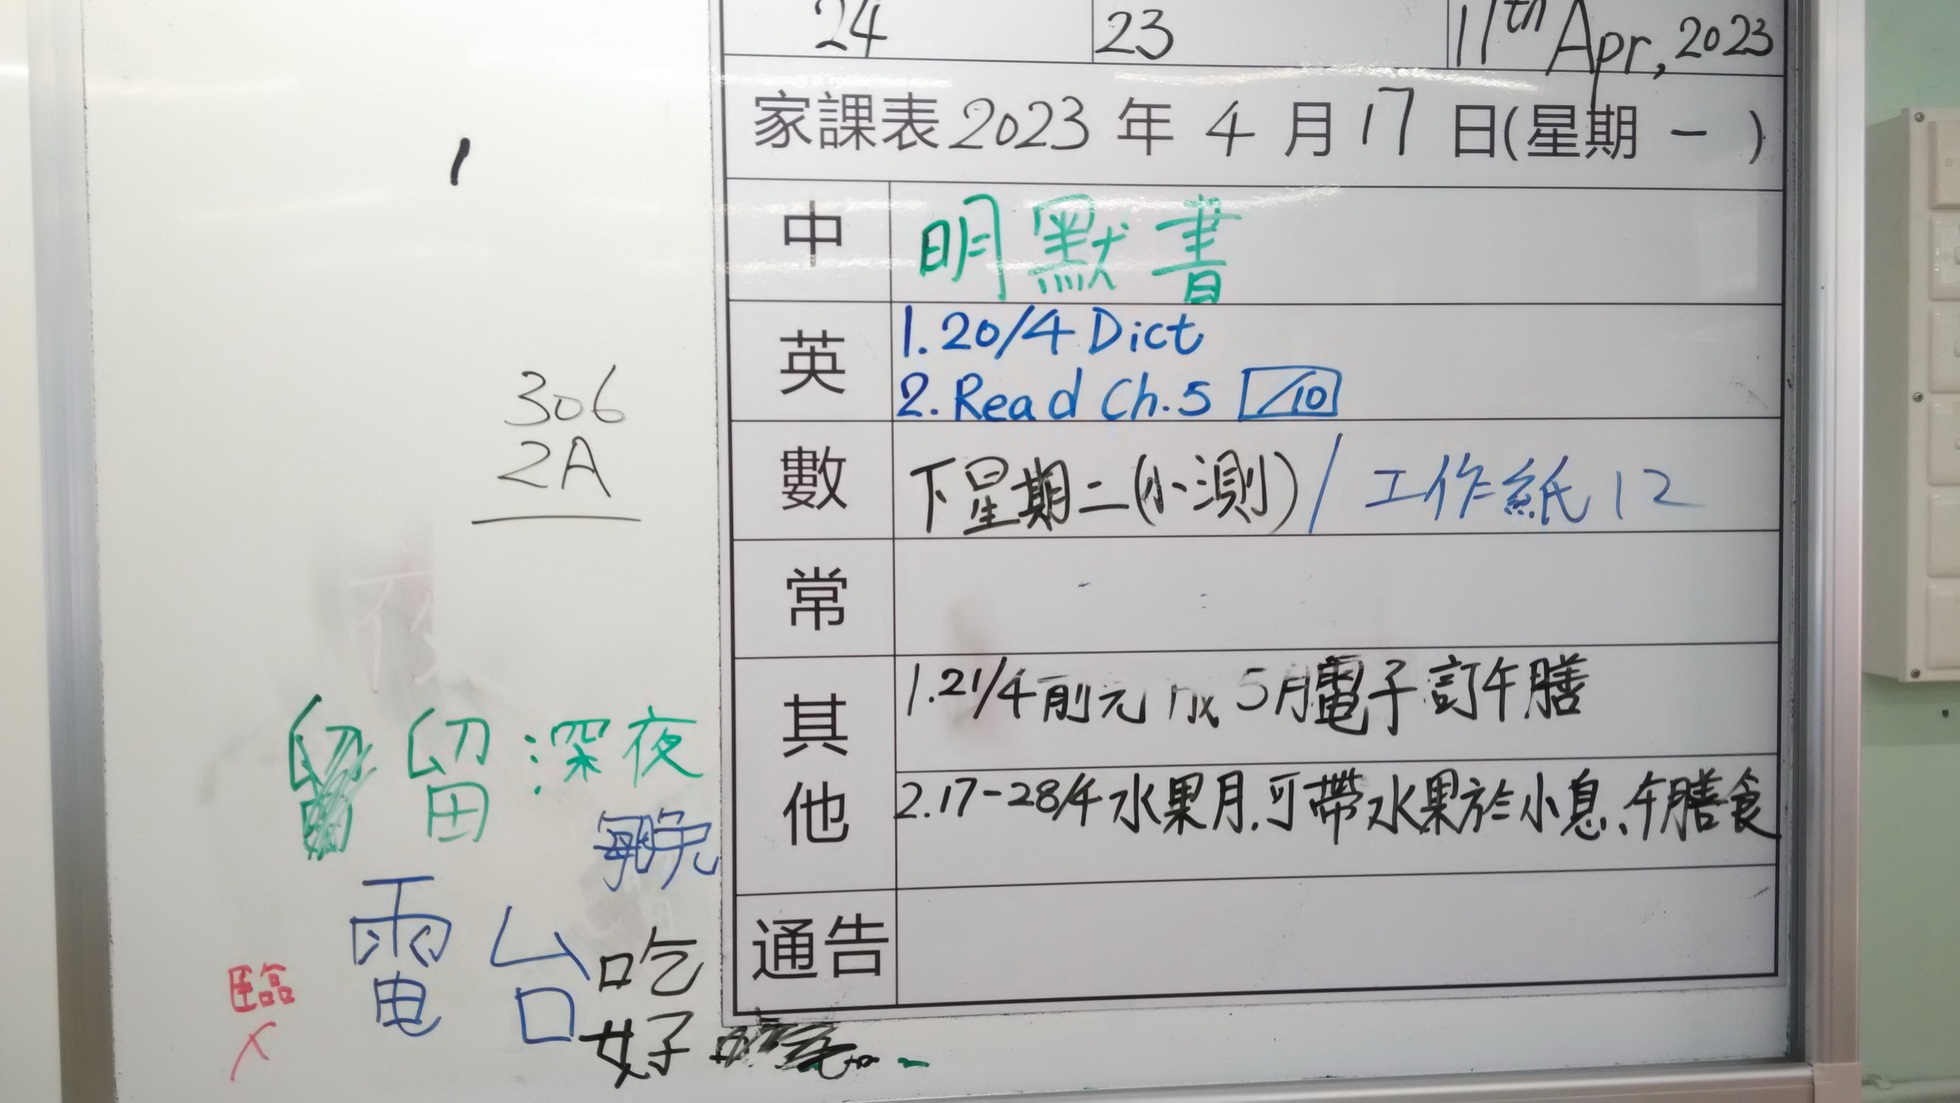 24 23 11th Apr, 2023
家課表 2023 年 4 月 17 日(星期 一 )
中 明默書
英 1. 20/4 Dict
2. Read Ch.5 /10
數 下星期二(小測) / 工作紙 12
常
其他 1. 21/4前完 5月電子訂午膳
2. 17-28/4 水果月,可帶水果於小息、午膳食
通告
306
2A
留 深夜
晚
電台
吃
好
臨